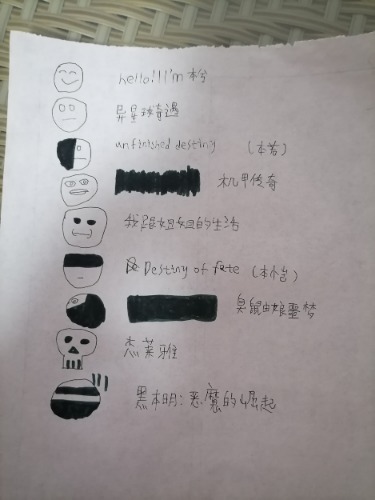 hello! I'm 本兮
异星球奇遇
unfinished destiny (本若)
机甲传奇
我跟姐姐的生活
Destiny of fate (本若)
臭鼠由娘噩梦
杰莱雅
黑本明:恶魔的崛起